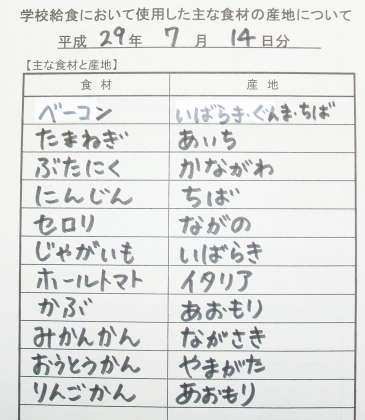 学校給食において使用した主な食材の産地について
平成 29 年 7 月 14 日分
【主な食材と産地】
食材 産地
ベーコン いばらき・ぐんま・ちば
たまねぎ あいち
ぶたにく かながわ
にんじん ちば
セロリ ながの
じゃがいも いばらき
ホールトマト イタリア
かぶ あおもり
みかんかん ながさき
おうとうかん やまがた
りんごかん あおもり